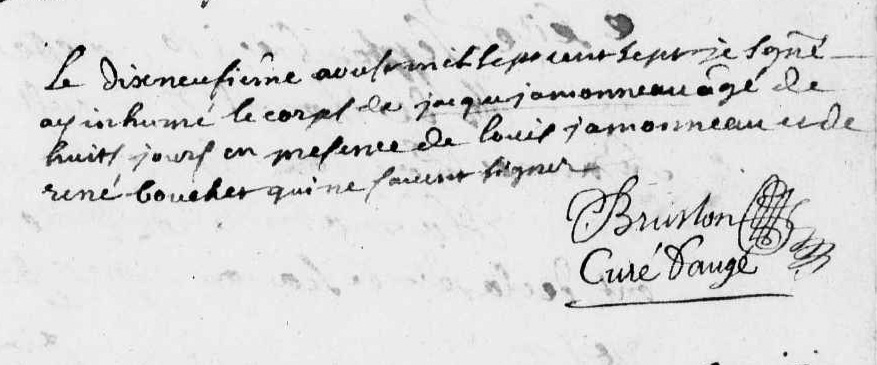 Le dixneufiême aoust mil sept cent sept je sgné
ay inhumé le corps de jacque jamonneau âgé de
huits jours en presence de louis jamonneau et de
rené bouchet qui ne savent signer
Bruslon
Curé d'augé